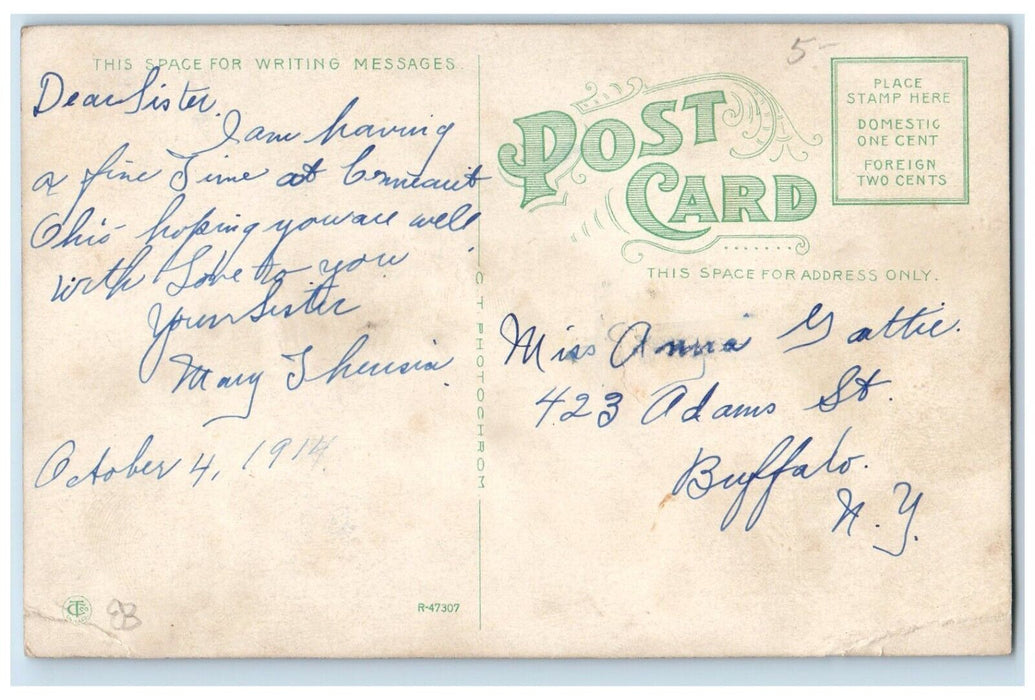 THIS SPACE FOR WRITING MESSAGES.
Dear Sister.
I am having
a fine Time at Conneaut
Ohio hoping you are well
with Love to you
Your Sister
Mary Theresia.
October 4, 1914
CT PHOTOCHROM
R-47307
5-
POST
CARD
PLACE
STAMP HERE
DOMESTIC
ONE CENT
FOREIGN
TWO CENTS
THIS SPACE FOR ADDRESS ONLY.
Miss Anna Gattie.
423 Adams St.
Buffalo.
N.Y.